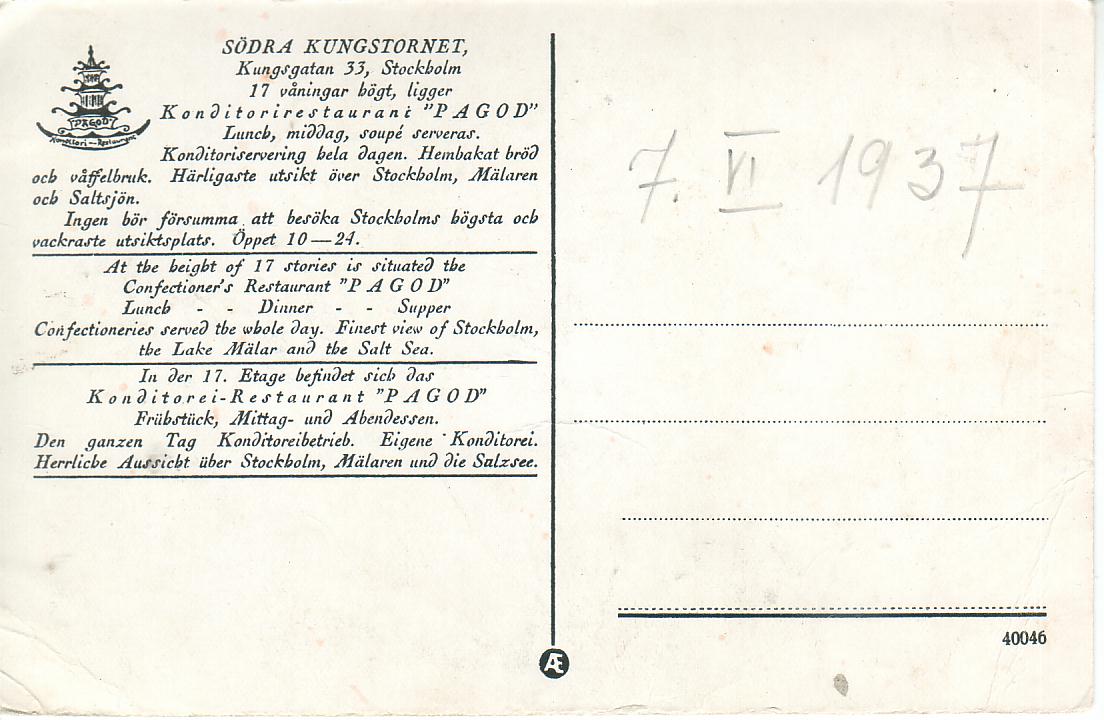 PAGOD
Konditori-Restaurant
SÖDRA KUNGSTORNET,
Kungsgatan 33, Stockholm
17 våningar högt, ligger
Konditorirestaurant "PAGOD"
Lunch, middag, soupé serveras.
Konditoriservering hela dagen. Hembakat bröd
och våffelbruk. Härligaste utsikt över Stockholm, Mälaren
och Saltsjön.
Ingen bör försumma att besöka Stockholms högsta och
vackraste utsiktsplats. Öppet 10—24.
At the height of 17 stories is situated the
Confectioner's Restaurant "PAGOD"
Lunch - - Dinner - - Supper
Confectioneries served the whole day. Finest view of Stockholm,
the Lake Mälar and the Salt Sea.
In der 17. Etage befindet sich das
Konditorei-Restaurant "PAGOD"
Frühstück, Mittag- und Abendessen.
Den ganzen Tag Konditoreibetrieb. Eigene Konditorei.
Herrliche Aussicht über Stockholm, Mälaren und die Salzsee.
Æ
7. VI 1937
40046